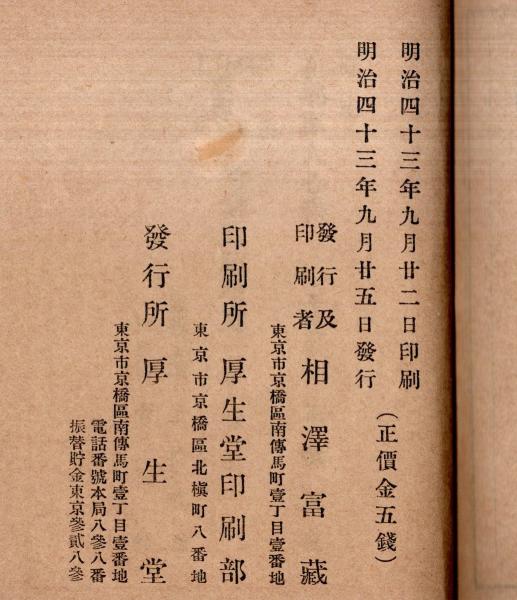 明治四十三年九月廿二日印刷
明治四十三年九月廿五日發行
（正價金五錢）
發行及
印刷者
相澤富藏
東京市京橋區南傳馬町壹丁目壹番地
印刷所 厚生堂印刷部
東京市京橋區北槇町八番地
發行所 厚生堂
東京市京橋區南傳馬町壹丁目壹番地
電話番號本局八參八番
振替貯金東京參貳八參